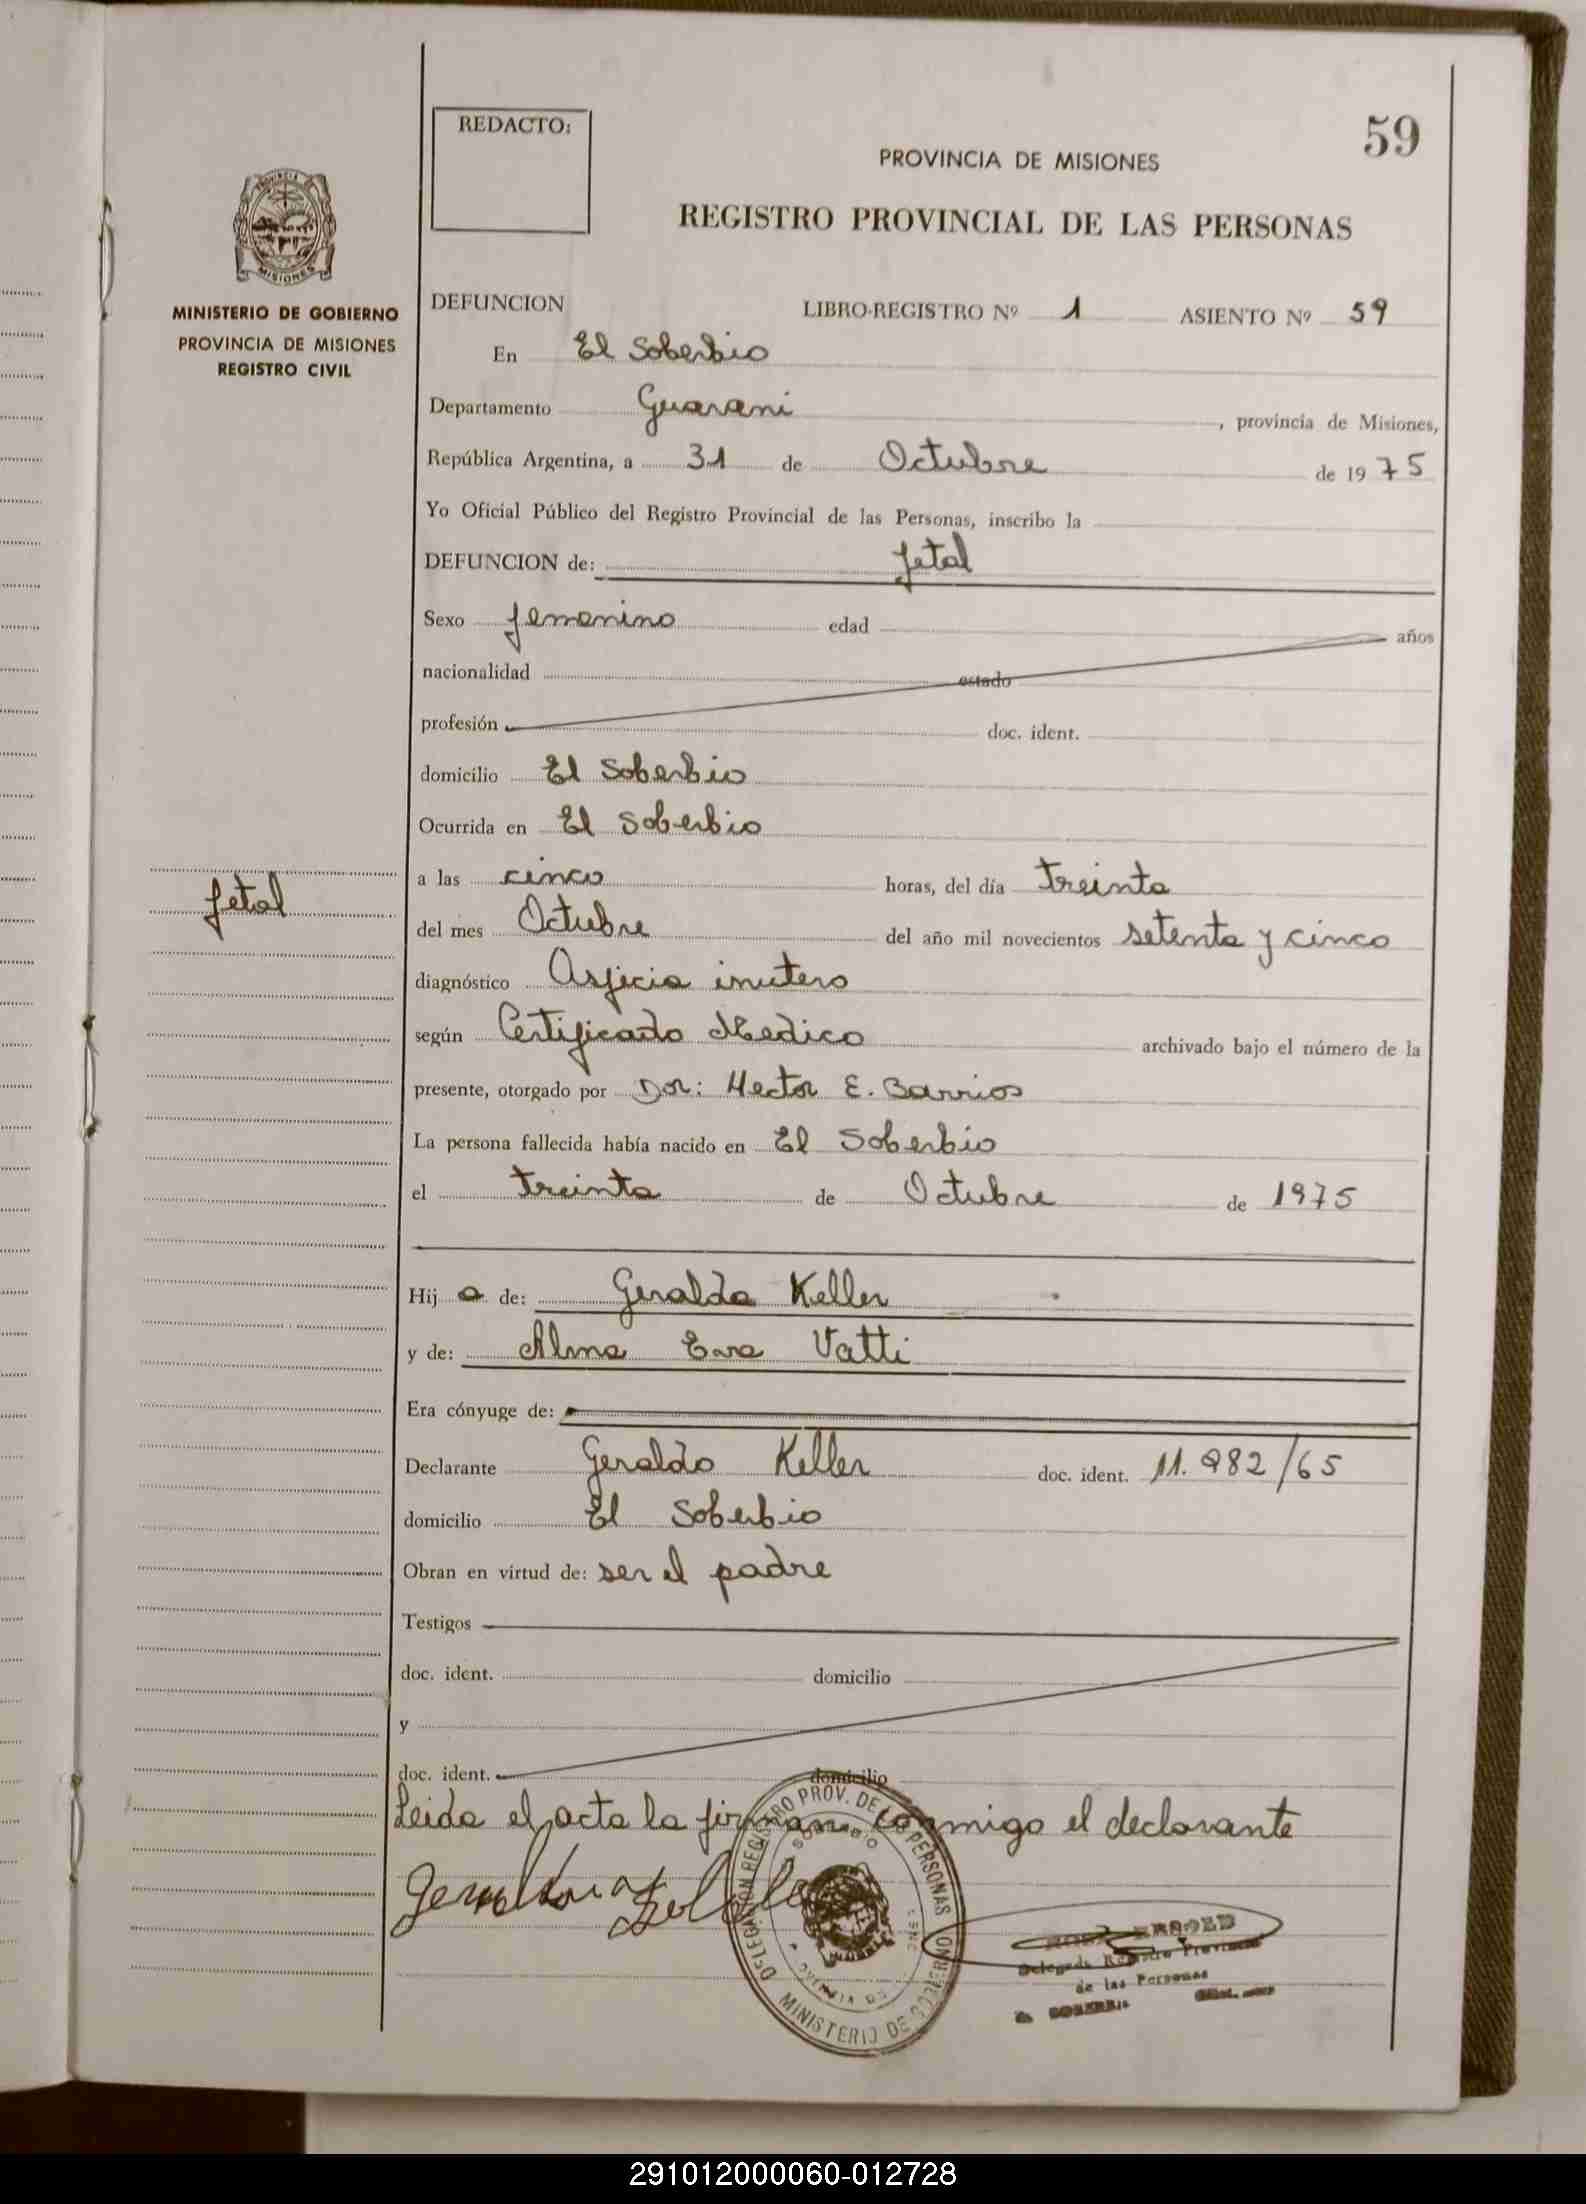 59
REDACTO:
PROVINCIA DE MISIONES
REGISTRO PROVINCIAL DE LAS PERSONAS
MISIONES
MINISTERIO DE GOBIERNO
PROVINCIA DE MISIONES
REGISTRO CIVIL
DEFUNCION LIBRO-REGISTRO Nº 1 ASIENTO Nº 59
En El Soberbio
Departamento Guarani, provincia de Misiones,
República Argentina, a 31 de Octubre de 1975
Yo Oficial Público del Registro Provincial de las Personas, inscribo la
DEFUNCION de: fetal
Sexo femenino edad años
nacionalidad estado
profesión doc. ident.
domicilio El Soberbio
Ocurrida en El Soberbio
fetal
a las cinco horas, del día treinta
del mes Octubre del año mil novecientos setenta y cinco
diagnóstico Asficia inutero
según Certificado Medico archivado bajo el número de la
presente, otorgado por Dor: Hector E. Barrios
La persona fallecida había nacido en El Soberbio
el treinta de Octubre de 1975
Hija de: Geraldo Keller
y de: Alma Vatti
Era cónyuge de:
Declarante Geraldo Keller doc. ident. 11.982/65
domicilio El Soberbio
Obran en virtud de: ser el padre
Testigos
doc. ident. domicilio
y
doc. ident. domicilio
Leida el acta la firman conmigo el declarante
DELEGACION REGISTRO PROV. DE LAS PERSONAS
MINISTERIO DE GOBIERNO
Delegado Registro Provincial
de las Personas
291012000060-012728